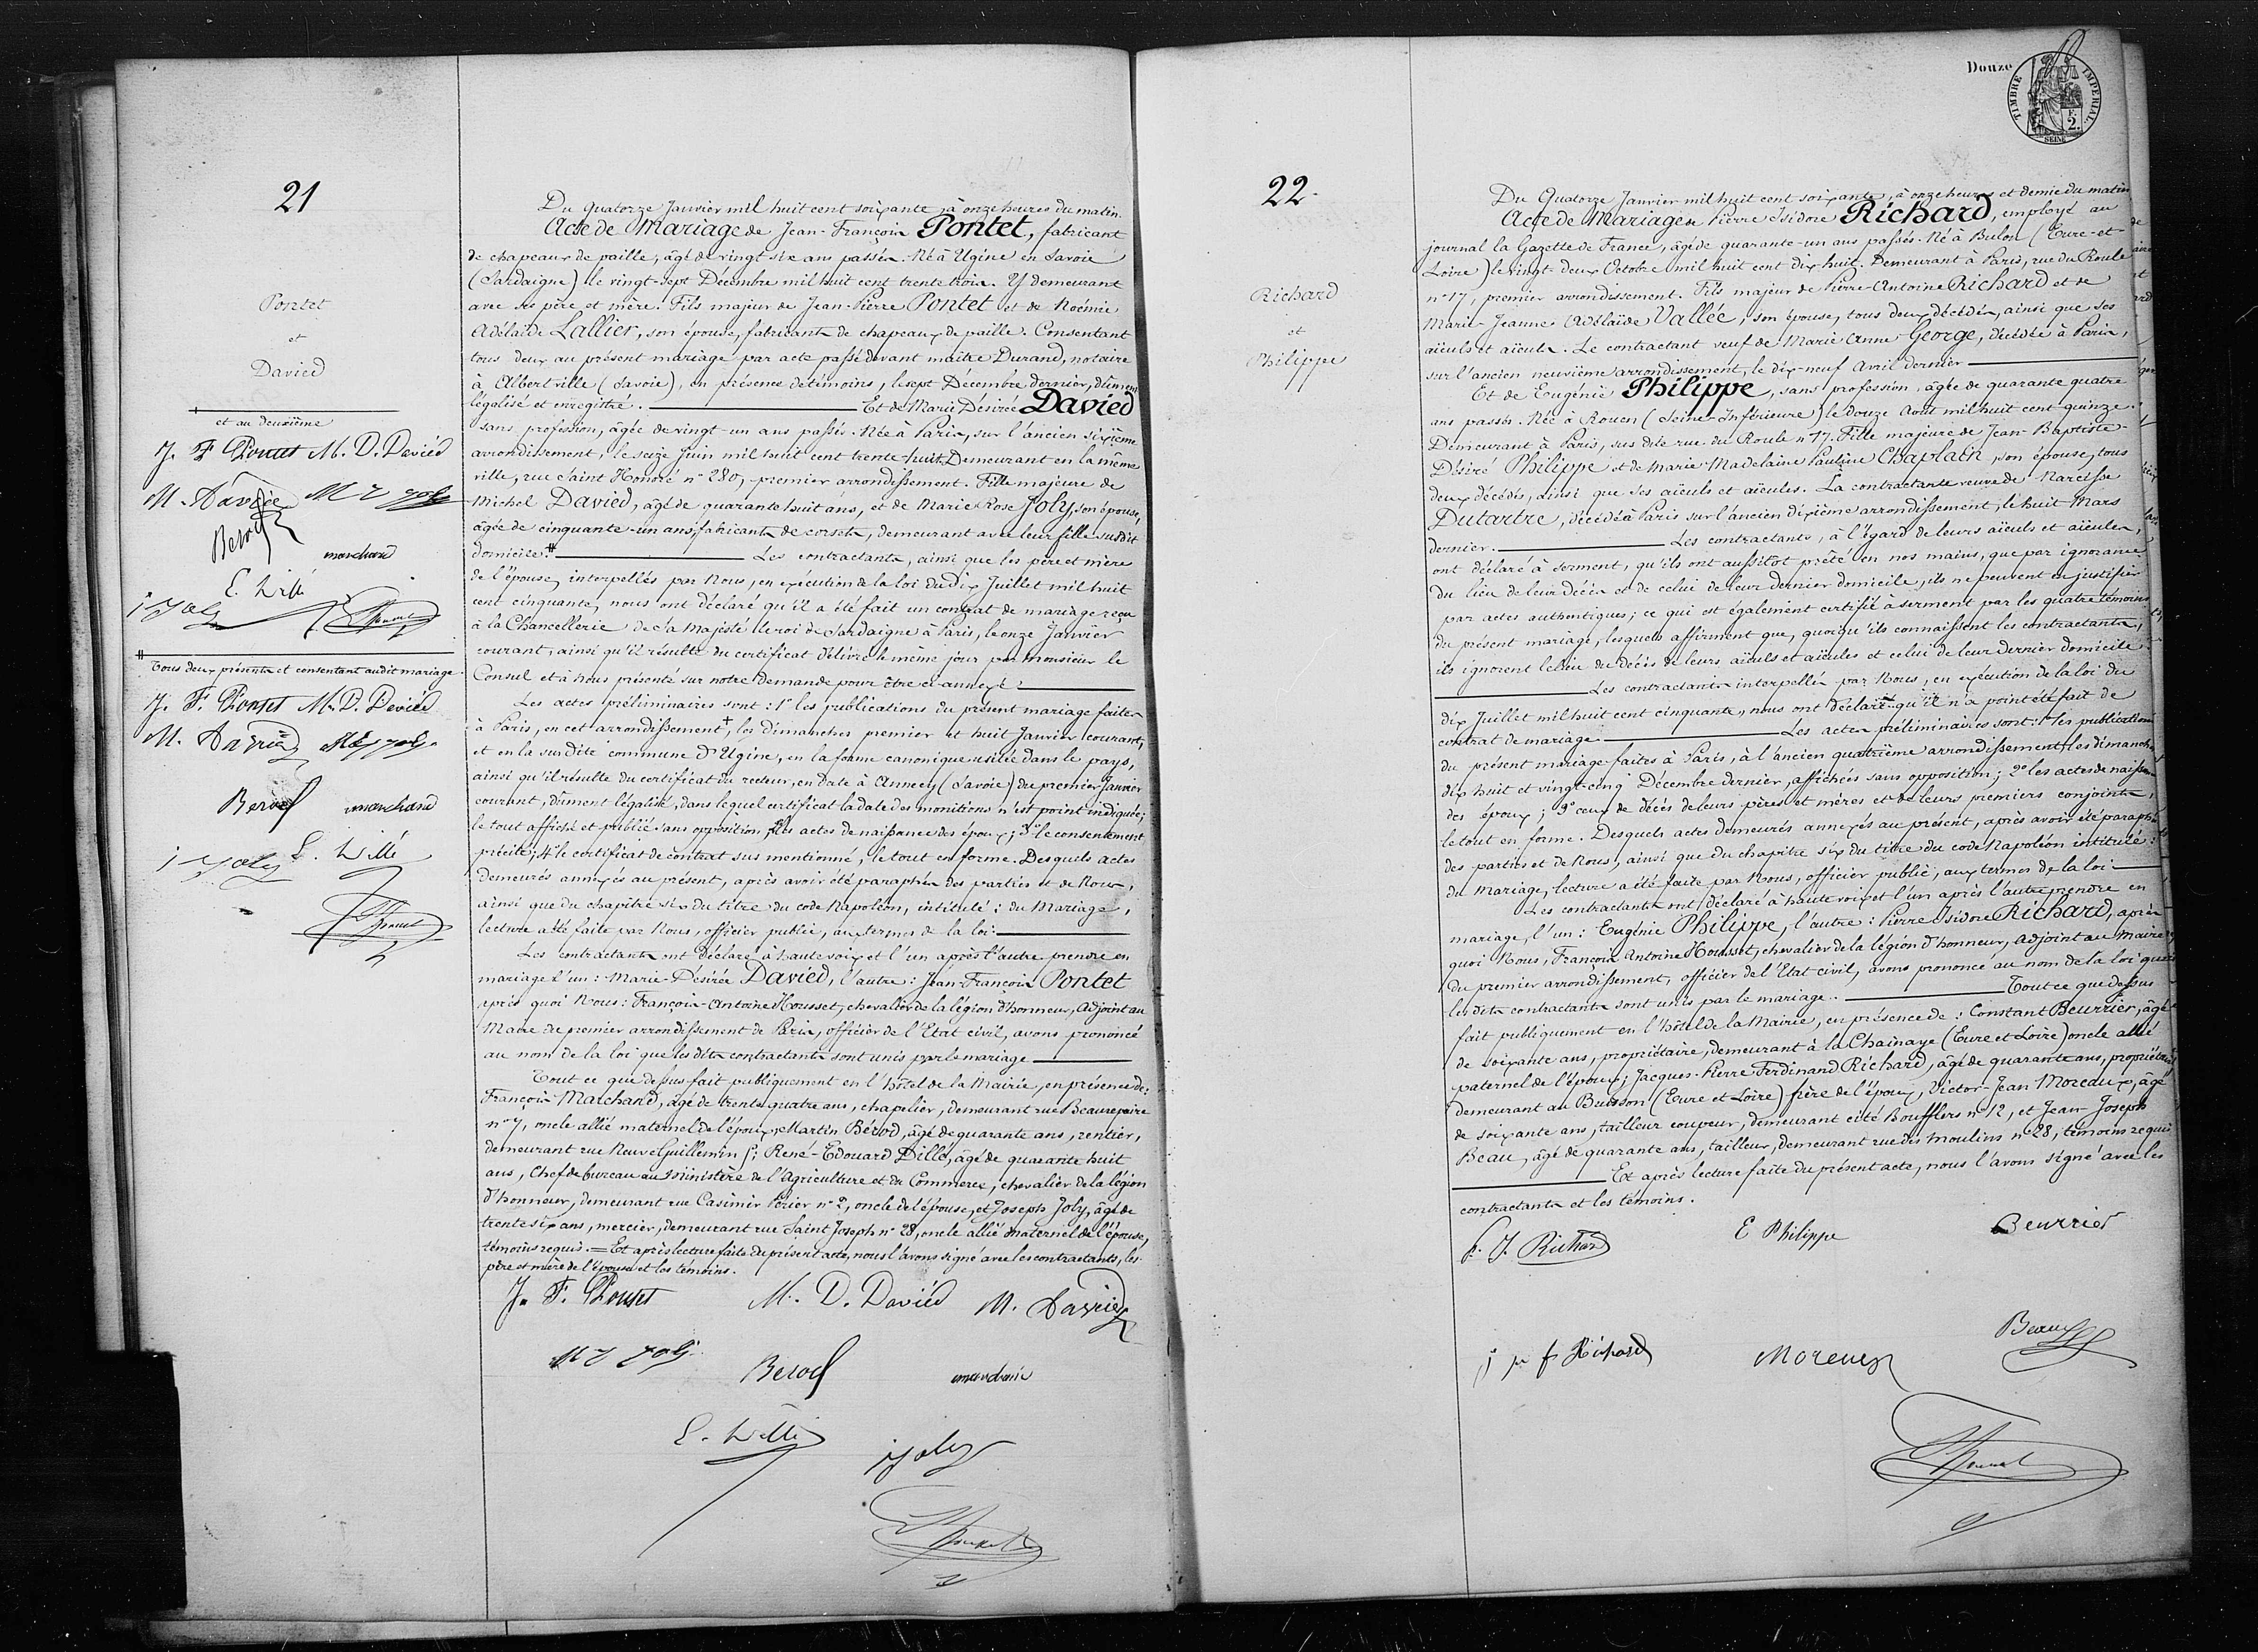 21
Pontet
et
Davied
et au deuxième
J. F. Pontet M. D. Davied
M. Davied
Berod
marchand
E. Dillé
J Joly
Tous deux présents et consentant audit mariage.
J. F. Pontet M. D. Davied
M. Davied
Berod marchand
J Joly E. Dillé
Du quatorze Janvier mil huit cent soixante, à onze heures du matin.
Acte de Mariage de Jean-François Pontet, fabricant
de chapeaux de paille, âgé de vingt six ans passés. Né à Ugine en Savoie
(Sardaigne) le vingt-sept Décembre mil huit cent trente trois. Y demeurant
avec ses père et mère. Fils majeur de Jean-Pierre Pontet et de Noémie
Adélaïde Lallier, son épouse, fabricants de chapeaux de paille. Consentant
tous deux au présent mariage par acte passé devant maître Durand, notaire
à Albertville (Savoie), en présence de témoins, le sept Décembre dernier, dûment
légalisé et enregistré. Et de Marie Désirée Davied
sans profession, âgée de vingt-un ans passés. Née à Paris, sur l'ancien sixième
arrondissement, le seize Juin mil huit cent trente-huit. Demeurant en la même
ville, rue Saint Honoré n° 280, premier arrondissement. Fille majeure de
Michel Davied, âgé de quarante huit ans, et de Marie Rose Joly, son épouse,
âgée de cinquante-un ans, fabricants de corsets, demeurant avec leur fille susdit
domicile. Les contractants, ainsi que les père et mère
de l'épouse, interpellés par Nous, en exécution de la loi du dix Juillet mil huit
cent cinquante, nous ont déclaré qu'il a été fait un contrat de mariage reçu
à la Chancellerie de Sa Majesté le roi de Sardaigne à Paris, le onze Janvier
courant, ainsi qu'il résulte du certificat délivré le même jour par Monsieur le
Consul et à nous présenté sur notre demande pour être ci-annexé.
Les actes préliminaires sont : 1° les publications du présent mariage faites
à Paris, en cet arrondissement +, les dimanches premier et huit Janvier courant,
et en la susdite commune d'Ugine, en la forme canonique usitée dans le pays,
ainsi qu'il résulte du certificat du recteur, en date à Annecy (Savoie) du premier Janvier
courant, dûment légalisé, dans lequel certificat la date des monitions n'est point indiquée;
le tout affiché et publié sans opposition; 2° les actes de naissance des époux; 3° le consentement
précité; 4° le certificat de contrat sus mentionné, le tout en forme. Desquels actes
demeurés annexés au présent, après avoir été paraphés des parties et de Nous,
ainsi que du chapitre six du titre du code Napoléon, intitulé : du Mariage,
lecture a été faite par Nous, officier public, aux termes de la loi.
Les contractants ont déclaré à haute voix et l'un après l'autre prendre en
mariage l'un : Marie-Désirée Davied, l'autre : Jean-François Pontet
après quoi Nous : François-Antoine Housset, chevalier de la légion d'honneur, Adjoint au
Maire du premier arrondissement de Paris, officier de l'Etat civil, avons prononcé
au nom de la loi que les dits contractants sont unis par le mariage
Tout ce que dessus fait publiquement en l'hôtel de la Mairie, en présence de :
François Marchand, âgé de trente quatre ans, chapelier, demeurant rue Beaurepaire
n° 7, oncle allié maternel de l'époux; Martin Bérod, âgé de quarante ans, rentier,
demeurant rue Neuve Guillemin; René-Edouard Dillé, âgé de quarante huit
ans, Chef de bureau au Ministère de l'Agriculture et du Commerce, chevalier de la légion
d'honneur, demeurant rue Casimir Périer n° 2, oncle de l'épouse, et Joseph Joly, âgé de
trente six ans, mercier, demeurant rue Saint Joseph n° 28, oncle allié maternel de l'épouse,
témoins requis. = Et après lecture faite du présent acte, nous l'avons signé avec les contractants, les
père et mère de l'épouse et les témoins.
J. F. Pontet M. D. Davied M. Davied
Berod marchand
E. Dillé
J Joly
Douze
TIMBRE IMPERIAL
2
SEINE
22.
Richard
et
Philippe
Du Quatorze Janvier mil huit cent soixante, à onze heures et demie du matin
Acte de Mariage de Pierre Isidore Richard, employé au
journal la Gazette de France, âgé de quarante-un ans passés. Né à Bulon (Eure-et-
Loire) le vingt-deux Octobre mil huit cent dix huit. Demeurant à Paris, rue du Roule
n° 17, premier arrondissement. Fils majeur de Pierre-Antoine Richard et de
Marie-Jeanne Adélaïde Vallée, son épouse, tous deux décédés, ainsi que ses
aïeuls et aïeules. Le contractant veuf de Marie Anne George, décédée à Paris,
sur l'ancien neuvième arrondissement, le dix-neuf Avril dernier
Et de Eugénie Philippe, sans profession, âgée de quarante quatre
ans passés. Née à Rouen (Seine-Inférieure) le douze Août mil huit cent quinze.
Demeurant à Paris, sus dite rue du Roule n° 17. Fille majeure de Jean-Baptiste-
Désiré Philippe et de Marie-Madelaine Pauline Chaplain, son épouse, tous
deux décédés, ainsi que ses aïeuls et aïeules. La contractante veuve de Narcisse
Dutartre, décédé à Paris sur l'ancien dixième arrondissement, le huit Mars
dernier. Les contractants, à l'égard de leurs aïeuls et aïeules,
ont déclaré à serment, qu'ils ont aussitôt prêté en nos mains, que par ignorance
du lieu de leur décès et de celui de leur dernier domicile, ils ne peuvent en justifier
par actes authentiques; ce qui est également certifié à serment par les quatre témoins
du présent mariage, lesquels affirment que, quoiqu'ils connaissent les contractants,
ils ignorent le lieu du décès de leurs aïeuls et aïeules et celui de leur dernier domicile.
Les contractants interpellés par Nous, en exécution de la loi du
dix Juillet mil huit cent cinquante, nous ont déclaré qu'il n'a point été fait de
contrat de mariage Les actes préliminaires sont : 1° les publications
du présent mariage faites à Paris, à l'ancien quatrième arrondissement, les dimanches
dix huit et vingt-cinq Décembre dernier, affichées sans opposition; 2° les actes de naissance
des époux; 3° ceux de décès de leurs pères et mères et de leurs premiers conjoints,
le tout en forme. Desquels actes demeurés annexés au présent, après avoir été paraphés
des parties et de Nous, ainsi que du chapitre six du titre du code Napoléon intitulé :
du Mariage, lecture a été faite par Nous, officier public, aux termes de la loi
Les contractants ont déclaré à haute voix et l'un après l'autre prendre en
mariage, l'un : Eugénie Philippe, l'autre : Pierre Isidore Richard, après
quoi Nous, François Antoine Housset, chevalier de la légion d'honneur, Adjoint au Maire
du premier arrondissement, officier de l'Etat civil, avons prononcé au nom de la loi que
les dits contractants sont unis par le mariage. Tout ce que dessus
fait publiquement en l'hôtel de la Mairie, en présence de : Constant Beurrier, âgé
de soixante ans, propriétaire, demeurant à la Chainaye (Eure et Loire) oncle allié
paternel de l'époux; Jacques-Pierre Ferdinand Richard, âgé de quarante ans, propriétaire
demeurant au Buisson (Eure et Loire) frère de l'époux, Victor-Jean Moreaux, âgé
de soixante ans, tailleur coupeur, demeurant cité Boufflers n° 12, et Jean-Joseph
Beau, âgé de quarante ans, tailleur, demeurant rue des Moulins n° 28, témoins requis
Et après lecture faite du présent acte, nous l'avons signé avec les
contractants et les témoins.
P. I. Richard E Philippe Beurrier
j p f Richard Moreaux Beau